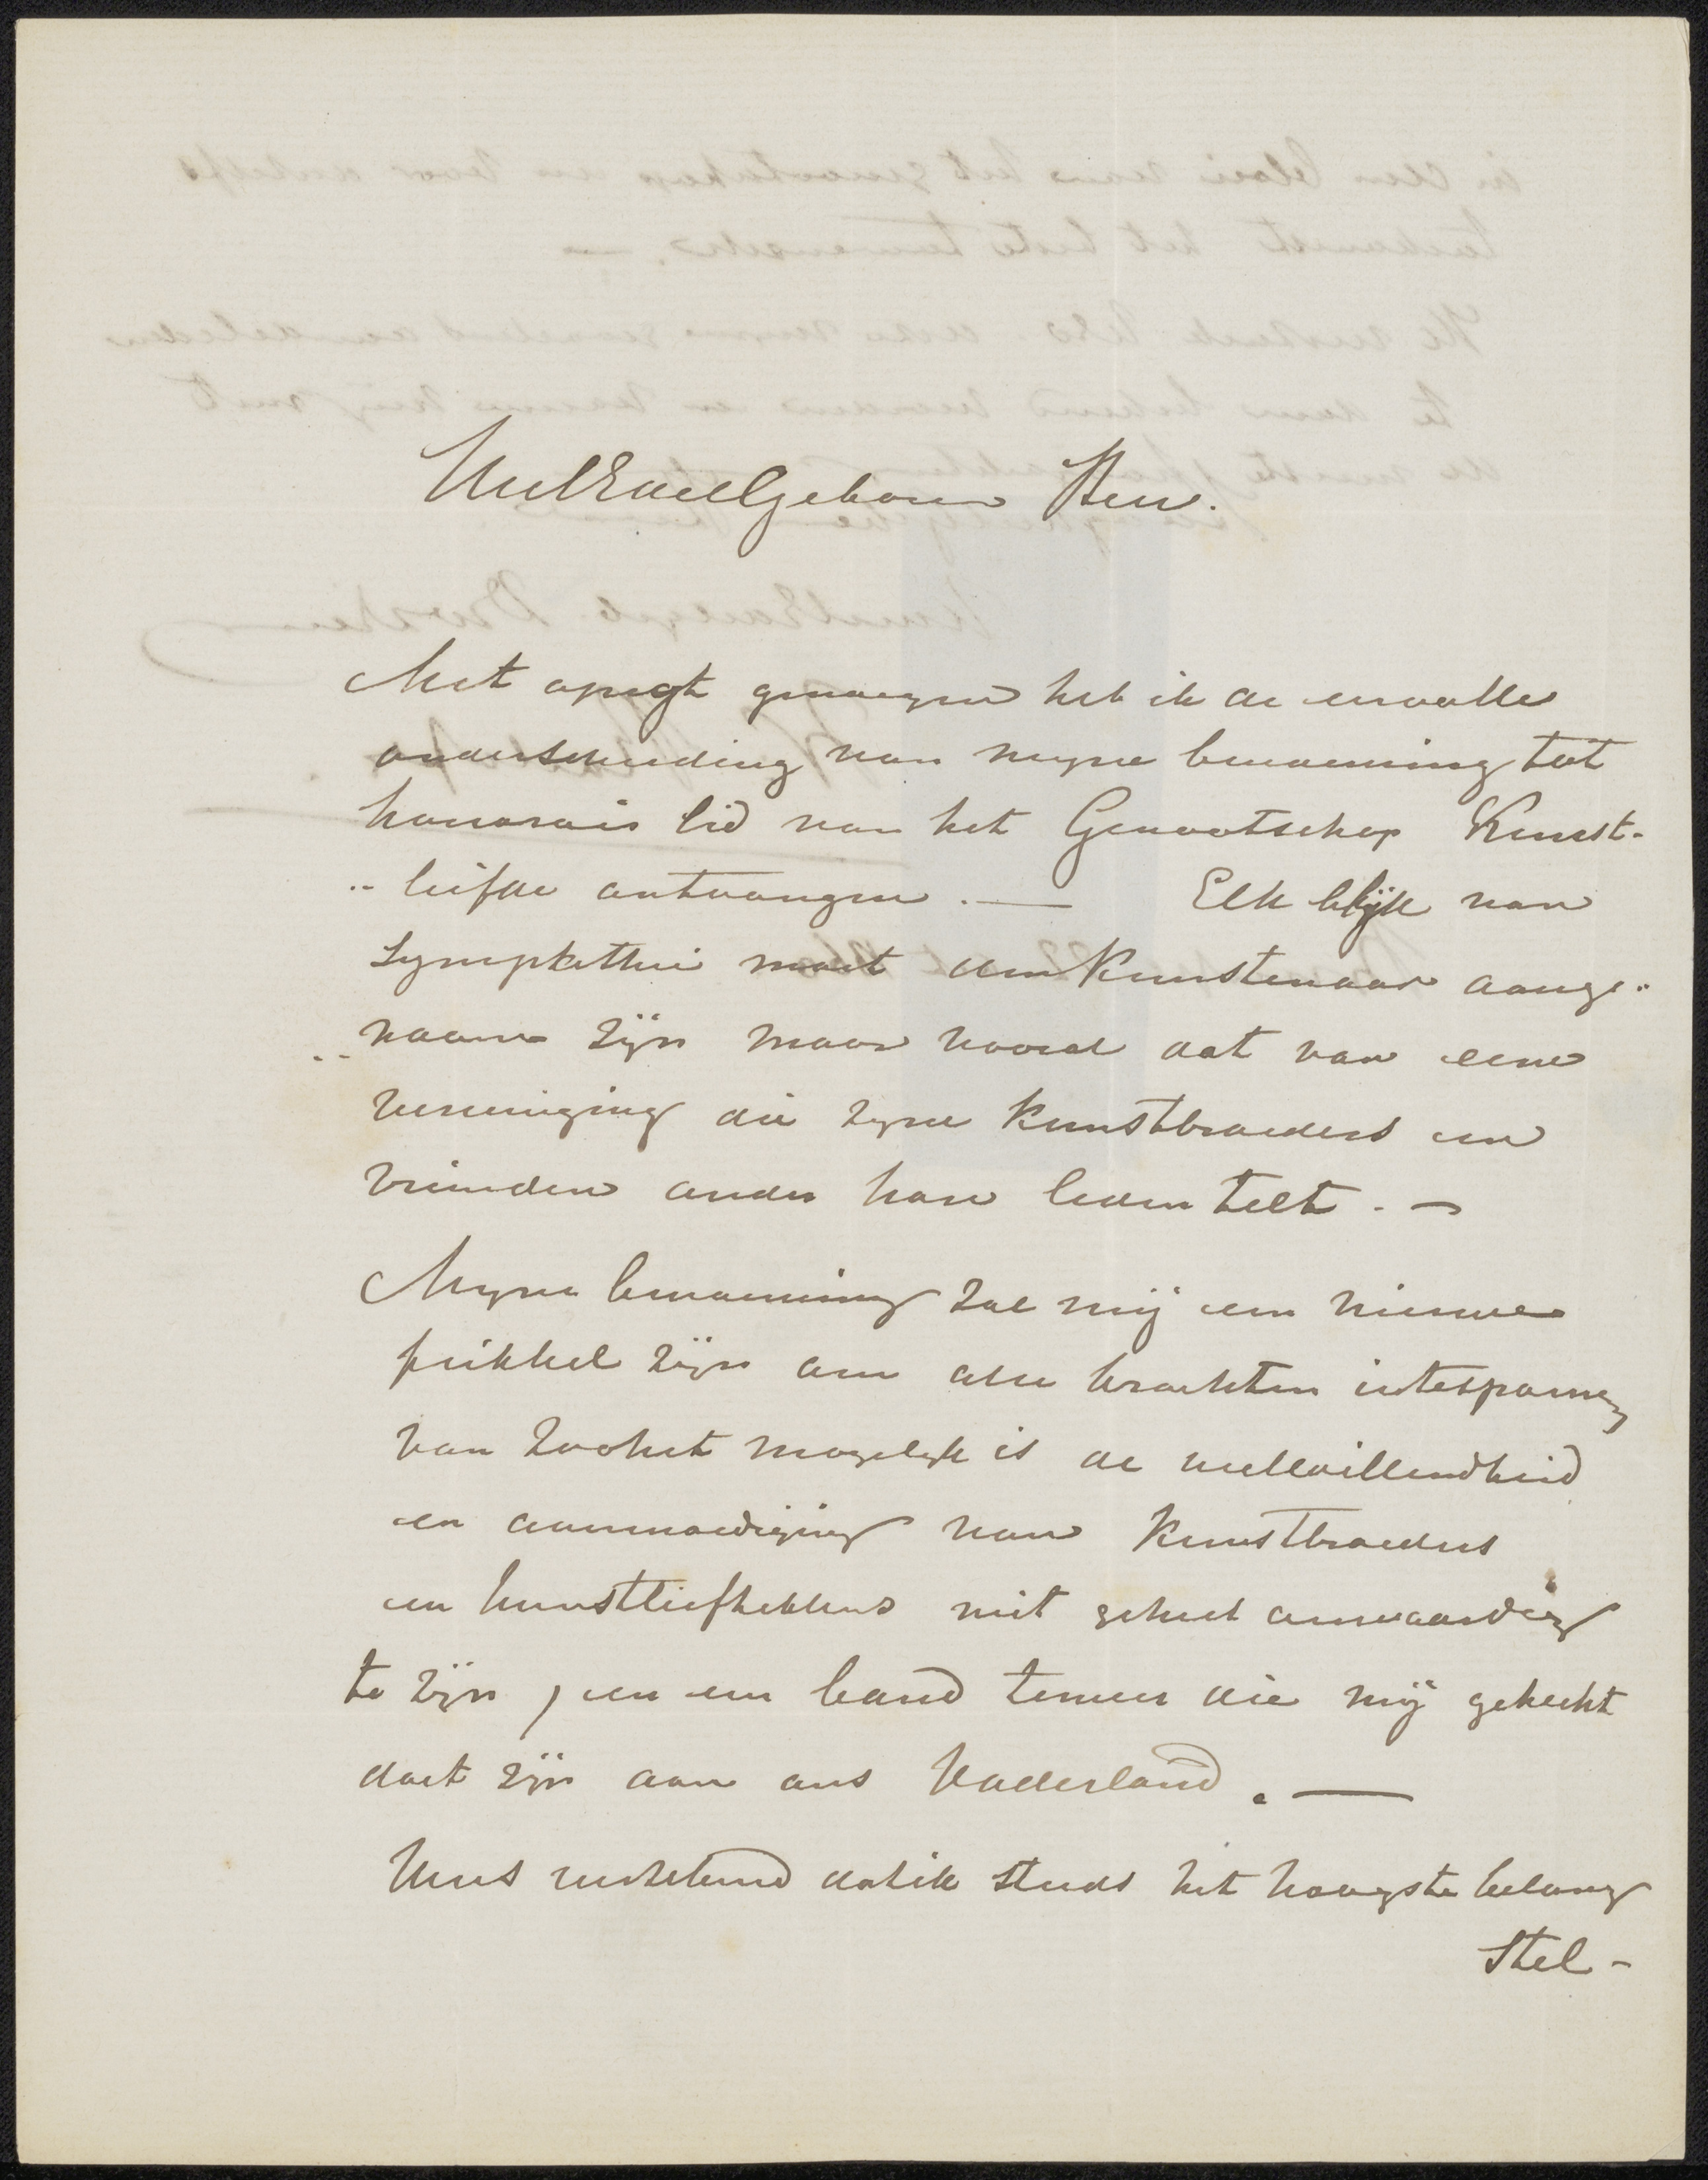 WelEdelGeboren Heer.
Met opregt genoegen heb ik de eervolle
onderscheiding van myne benoeming tot
honorair lid van het Genootschap Kunst-
" liefde ontvangen. — Elk blijk van
Sympathie moet den Kunstenaar aange"
" naam zijn maar vooral dat van eene
vereeniging die zyne Kunstbroeders en
vrienden onder hare leden telt. —
Myne benoeming zal mij een nieuwe
prikkel zijn om alle krachten intespannen
van zoohet mogelyk is de welwillendheid
en aanmoediging van Kunstbroeders
en kunstliefhebbers niet geheel onwaardig
te zijn, en een band temeer die mij gehecht
doet zijn aan ons Vaderland. —
Wees verzekerd datik steeds het hoogste belang
Stel -